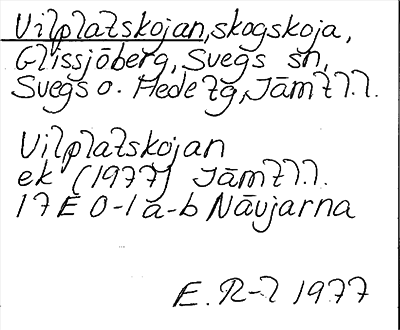 Vilplatskojan, skogskoja,
Glissjöberg, Svegs sn,
Svegs o. Hede tg, Jämtl.l.
Vilplatskojan
ek (1977) Jämtl.l.
17 E 0-1 a-b Nävjarna
E. R-l 1977